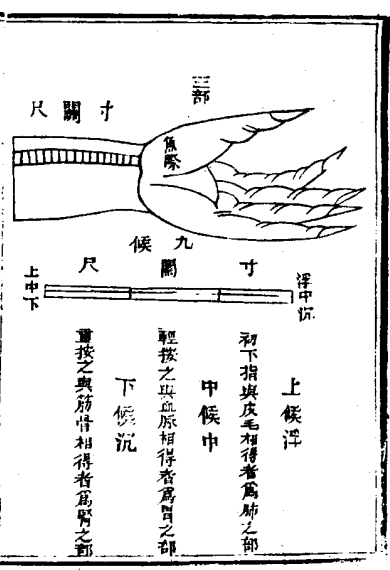 三部
寸關尺
魚際
九候
寸關尺
浮中沉
上中下
上候浮
初下指與皮毛相得者為肺之部
中候中
輕按之與血脈相得者為胃之部
下候沉
重按之與筋骨相得者為腎之部